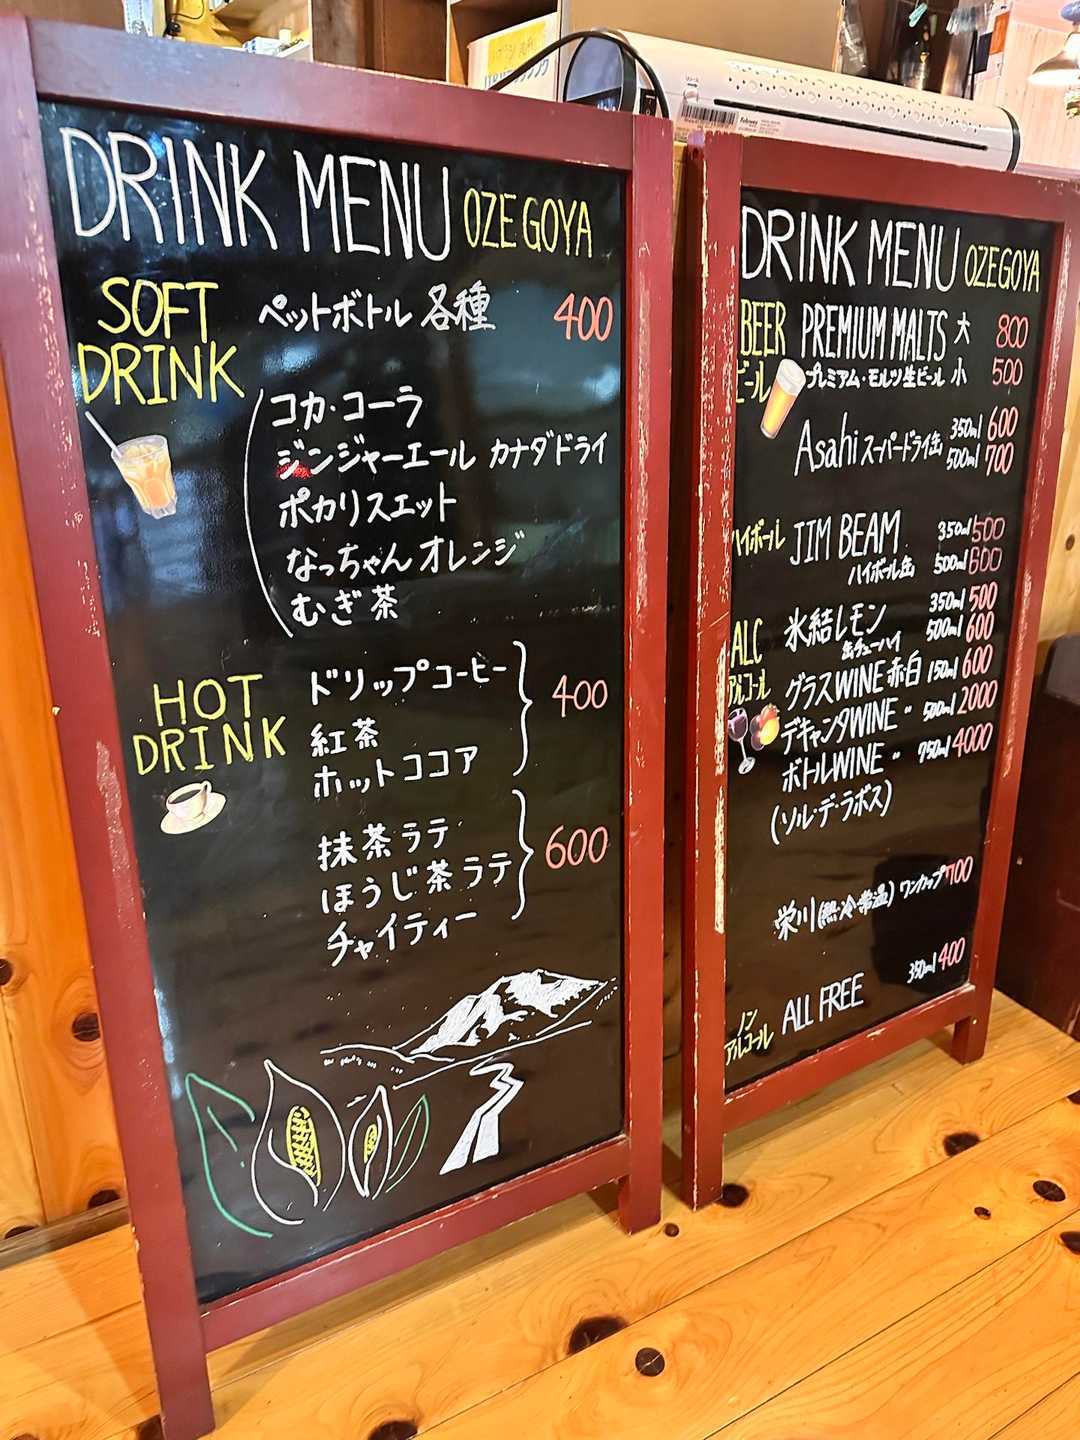 DRINK MENU OZE GOYA
SOFT DRINK
ペットボトル 各種 400
コカ・コーラ
ジンジャーエール カナダドライ
ポカリスエット
なっちゃん オレンジ
むぎ茶
HOT DRINK
ドリップコーヒー
紅茶 400
ホットココア
抹茶ラテ
ほうじ茶ラテ 600
チャイティー
DRINK MENU OZEGOYA
BEER PREMIUM MALTS 大 800
ビール プレミアム・モルツ生ビール 小 500
Asahi スーパードライ缶 350ml 600
500ml 700
ハイボール JIM BEAM 350ml 500
ハイボール缶 500ml 600
ALC アルコール
氷結レモン 350ml 500
缶チューハイ 500ml 600
グラスWINE 赤白 150ml 600
デキャンタWINE 〃 500ml 2000
ボトルWINE 〃 750ml 4000
(ソル・デ・ラボス)
栄川(熱・冷・常温) ワンカップ 700
ノンアルコール ALL FREE 350ml 400
Fellowes